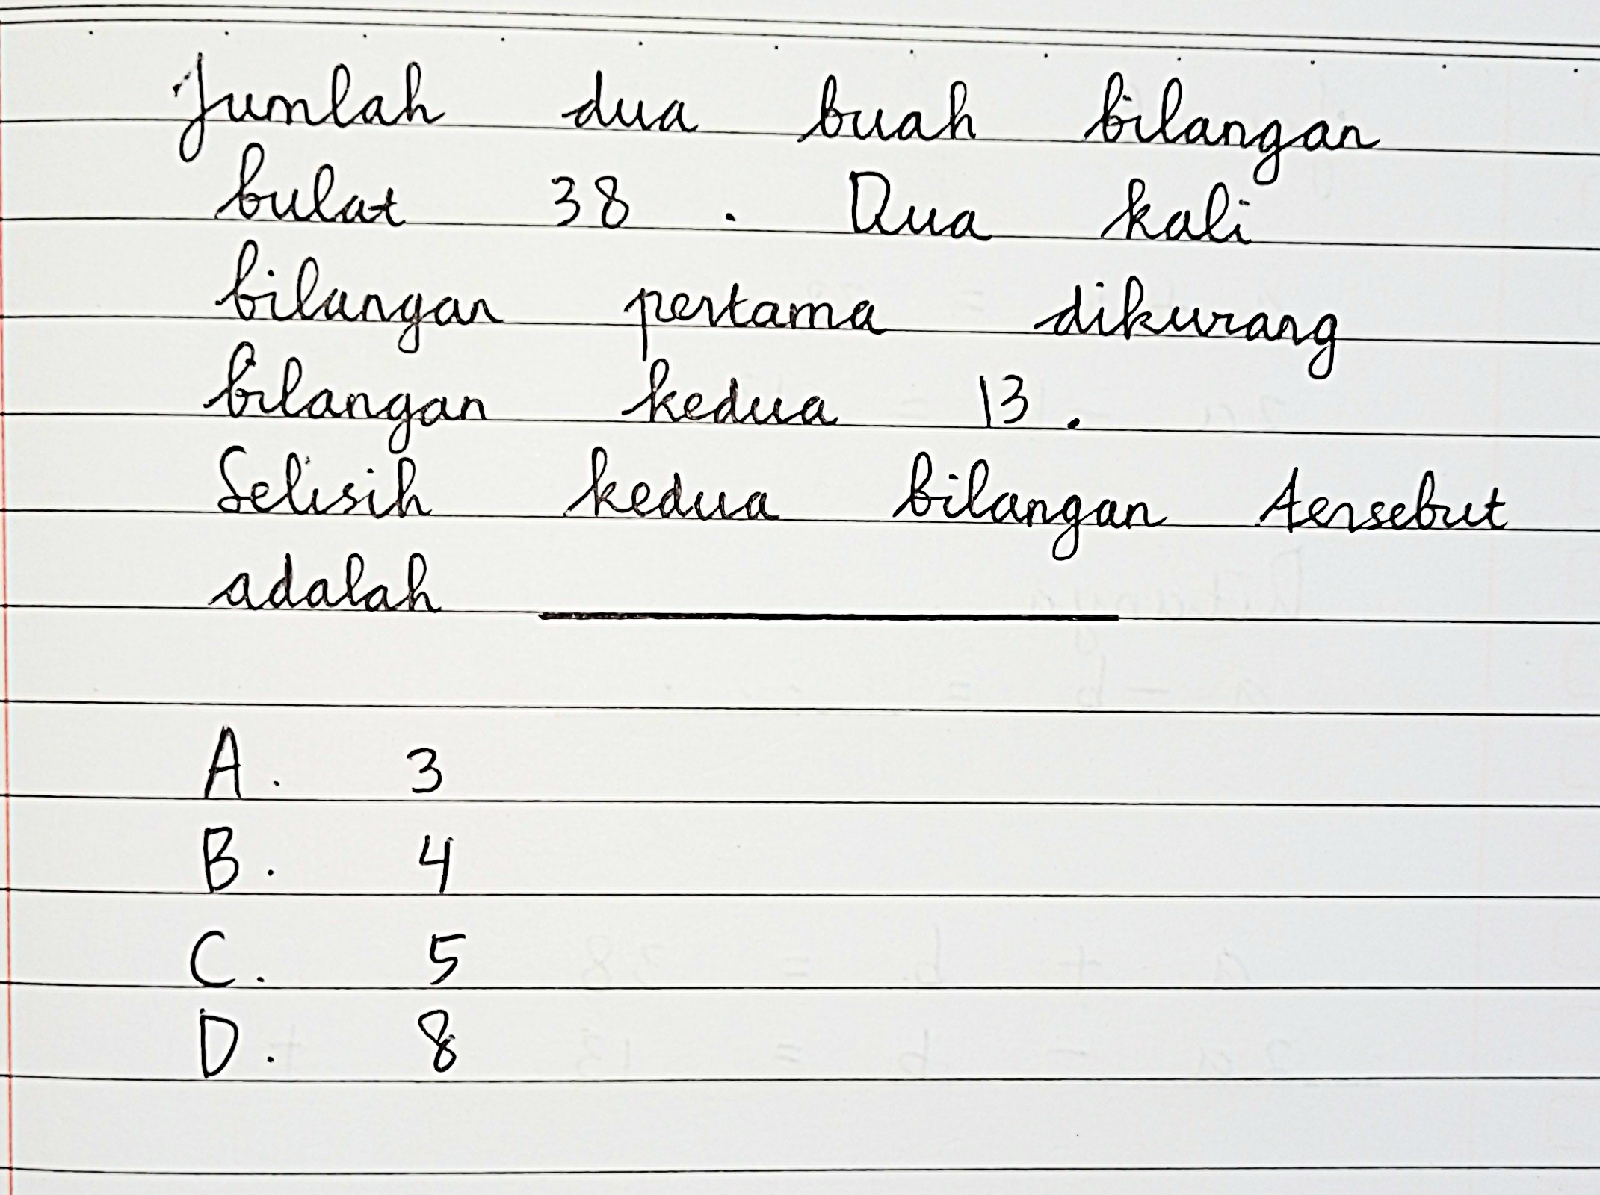 Jumlah dua buah bilangan
bulat 38 . Dua kali
bilangan pertama dikurang
bilangan kedua 13 .
Selisih kedua bilangan tersebut
adalah ________
A. 3
B. 4
C. 5
D. 8